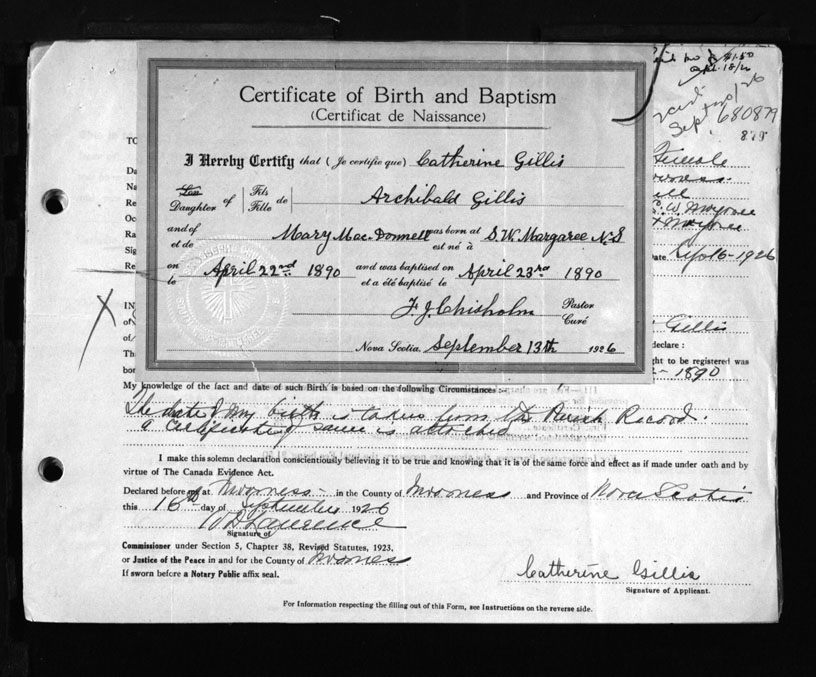 $1.50
Sept 20/26
680879
875
Certificate of Birth and Baptism
(Certificat de Naissance)
I Hereby Certify that (Je certifie que) Catherine Gillis
Son
Daughter of Fils Fille de Archibald Gillis
and of et de Mary Mac-Donnell was born at est né à S.W. Margaree N.S
on le April 22nd 1890 and was baptised on et a été baptisé le April 23rd 1890
F. J. Chisholm Pastor Curé
Nova Scotia, September 13th 1926
TO
Da
Na
Re
Oc
Ra
Sig
Re
Female
Date 16-1926
IN
of
of
Th
bor
Gillis
declare :
ght to be registered was
1890
My knowledge of the fact and date of such Birth is based on the following Circumstances :-
The date of my birth is taken from the Parish Record.
a certificate of same is attached
I make this solemn declaration conscientiously believing it to be true and knowing that it is of the same force and effect as if made under oath and by
virtue of The Canada Evidence Act.
Declared before me at Inverness in the County of Inverness and Province of Nova Scotia
this 16th day of September 1926
Lawrence
Signature of
Commissioner under Section 5, Chapter 38, Revised Statutes, 1923,
or Justice of the Peace in and for the County of Inverness
If sworn before a Notary Public affix seal.
Catherine Gillis
Signature of Applicant.
For Information respecting the filling out of this Form, see Instructions on the reverse side.